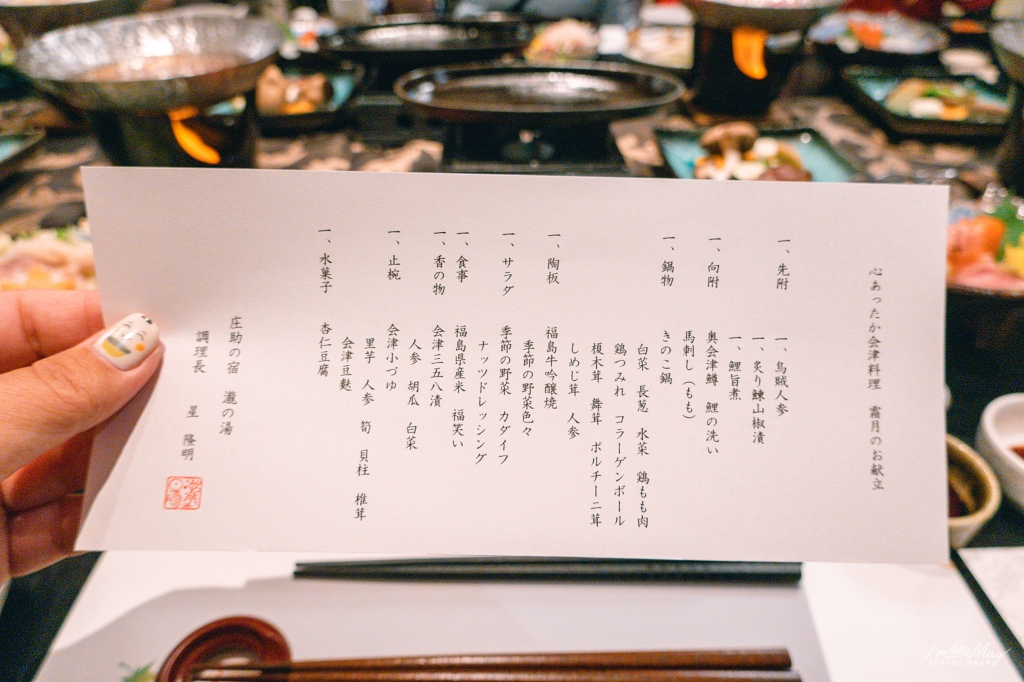 心あったか会津料理　霜月のお献立
一、先附　一、烏賊人参
一、炙り鰊山椒漬
一、鯉旨煮
一、向附　奥会津鱒　鯉の洗い
馬刺し（もも）
一、鍋物　きのこ鍋
白菜　長葱　水菜　鶏もも肉
鶏つみれ　コラーゲンボール
榎木茸　舞茸　ポルチーニ茸
しめじ茸　人参
一、陶板　福島牛吟醸焼
季節の野菜色々
一、サラダ　季節の野菜　カダイフ
ナッツドレッシング
一、食事　福島県産米　福笑い
一、香の物　会津三五八漬
人参　胡瓜　白菜
一、止椀　会津小づゆ
里芋　人参　筍　貝柱　椎茸
会津豆麩
一、水菓子　杏仁豆腐
庄助の宿　瀧の湯
調理長　星　隆明